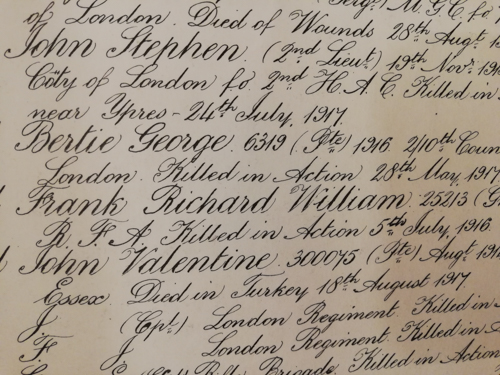 (Sergt) M.G.C. fo
of London. Died of Wounds 28th Augt. 1
John Stephen. (2nd Lieut) 19th Novr. 19
City of London fo. 2nd H.A.C. Killed in
near Ypres - 24th July, 1917.
Bertie George. 6319 (Pte) 1916 2/10th Coun
London. Killed in Action 28th May, 1917
Frank Richard William. 25213 (G
R.F.A. Killed in Action 5th July, 1916.
John Valentine. 300075 (Pte) Augt. 191
Essex. Died in Turkey 18th August 1917.
J. (Cpl.) London Regiment. Killed in A
F. J. London Regiment. Killed in A
Brigade Killed in Action